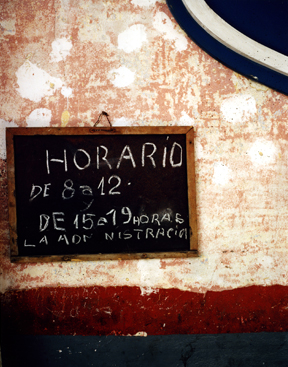 HORARIO
DE 8 a 12.
y
DE 15 a 19 HORAS
LA ADMINISTRACIÓN